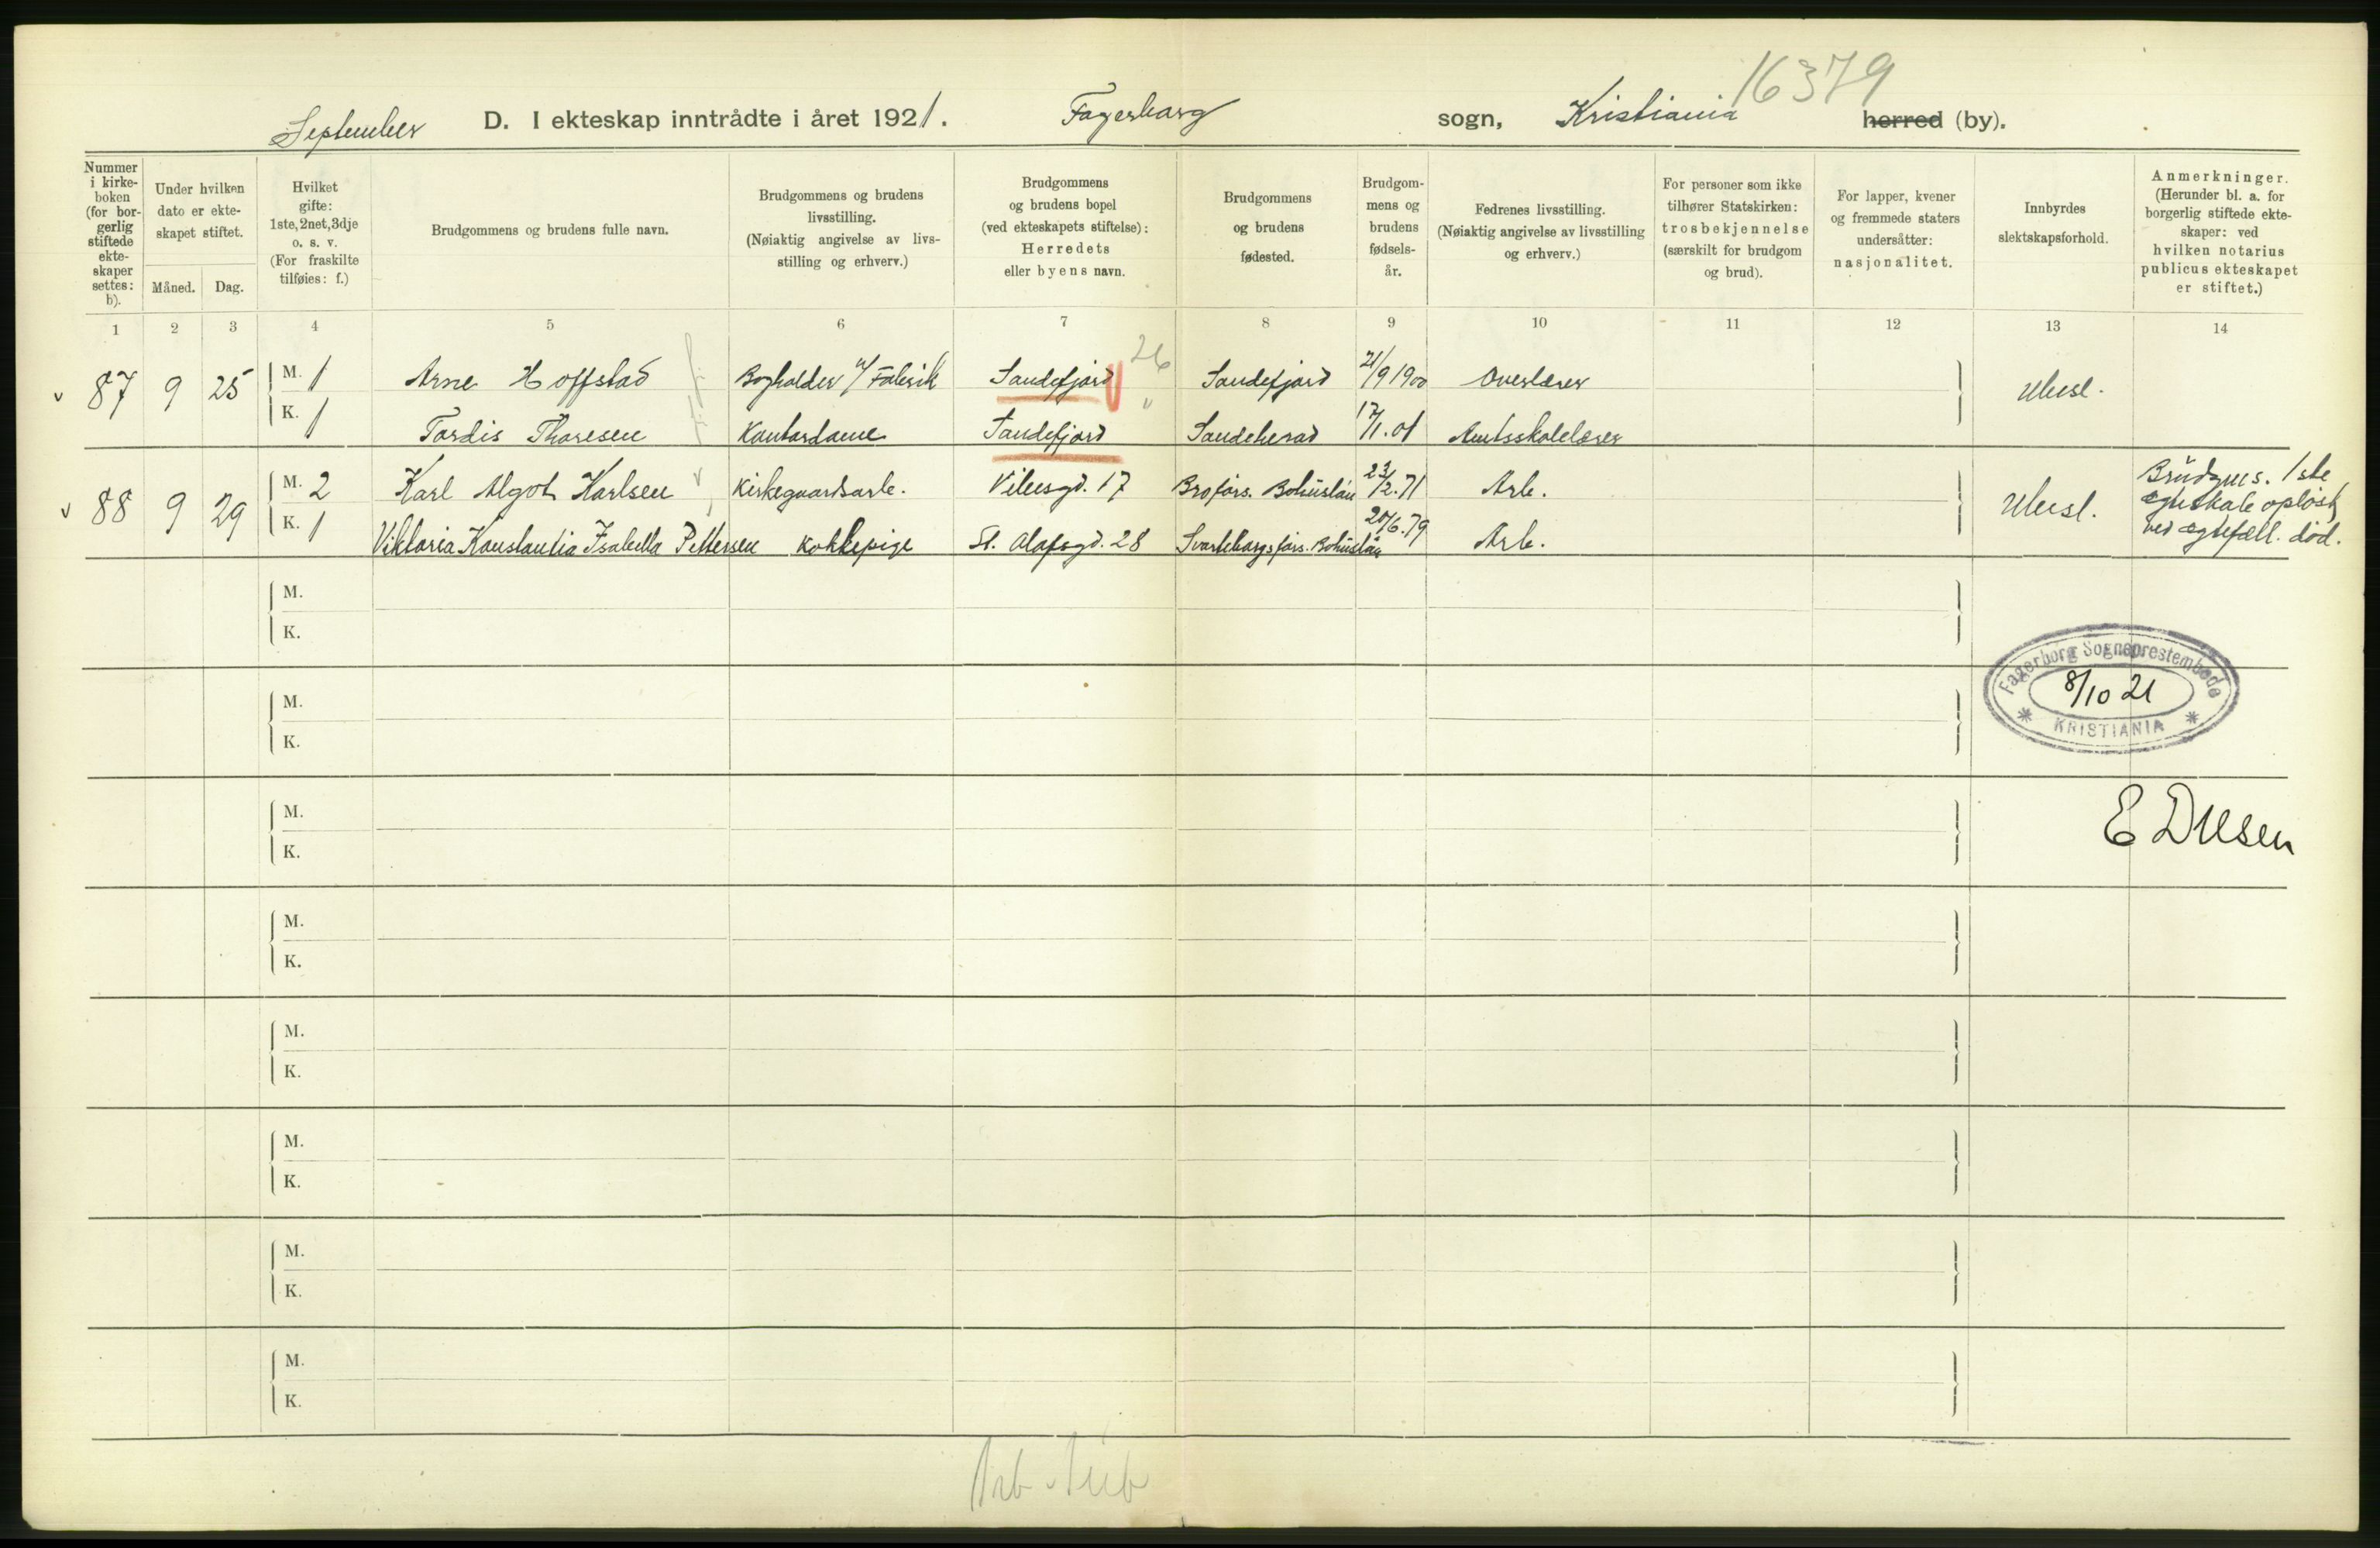 16379
September D. I ekteskap inntrådte i året 1921. Fagerborg sogn, Kristiania herred (by).
Nummer i kirke- boken (for bor- gerlig stiftede ekte- skaper settes: b).
Under hvilken dato er ekte- skapet stiftet.
Måned. Dag.
Hvilket gifte: 1ste, 2net, 3dje o. s. v. (For fraskilte tilføies: f.)
Brudgommens og brudens fulle navn.
Brudgommens og brudens livsstilling. (Nøiaktig angivelse av livs- stilling og erhverv.)
Brudgommens og brudens bopel (ved ekteskapets stiftelse): Herredets eller byens navn.
Brudgommens og brudens fødested.
Brudgom- mens og brudens fødsels- år.
Fedrenes livsstilling. (Nøiaktig angivelse av livsstilling og erhverv.)
For personer som ikke tilhører Statskirken: trosbekjennelse (særskilt for brudgom og brud).
For lapper, kvener og fremmede staters undersåtter: nasjonalitet.
Innbyrdes slektskapsforhold.
Anmerkninger. (Herunder bl. a. for borgerlig stiftede ekte- skaper: ved hvilken notarius publicus ekteskapet er stiftet.)
1 2 3 4 5 6 7 8 9 10 11 12 13 14
v 87 9 25 M. 1 Arne Hoffstad Bogholder v/ Fabrik Sandefjord 26 Sandefjord 21/9 1900 Overlærer Ubesl.
K. 1 Tordis Thoresen Kontordame Sandefjord " Sandeherad 17/1.01 Amtsskolelærer
v 88 9 29 M. 2 Karl Algot Karlsen Kirkegaardsarb. Vibesgd. 17 Brofors. Bohüslän 23/2.71 Arb. Ubesl. Brüdgms. 1ste egteskab opløst ved egtefæll. død.
K. 1 Viktoria Konstantia Isabella Pettersen Kokkepige St. Olafsgd. 28 Svarteborgsförs. Bohüslän 20/6.79 Arb.
M.
K.
Fagerborg Sogneprestembede
8/10 21
KRISTIANIA
M.
K.
M.
K.
M.
K.
M.
K.
M.
K.
M.
K.
M.
K.